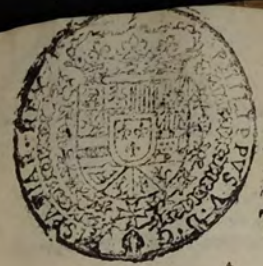 PHILIPPVS·V·D·G·
HISPANIAR·REX